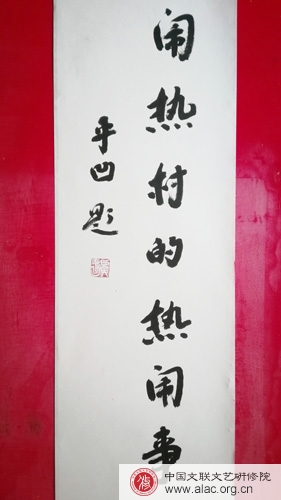 闹热村的热闹事
平凹题
中国文联文艺研修院
www.alac.org.cn